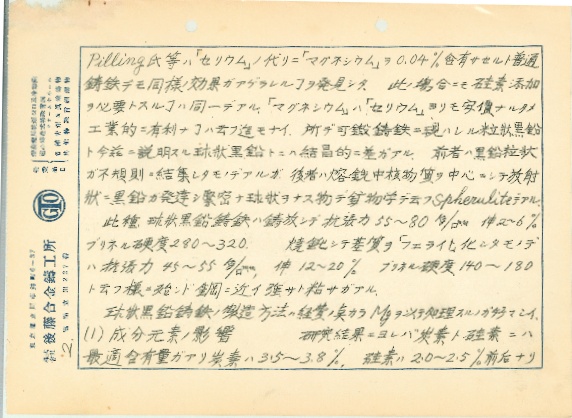 Pilling氏等ハ「セリウム」ノ代リニ「マグネシウム」ヲ0.04%含有サセルト普通
鋳鉄デモ同様ノ効果ガアゲラレルコトヲ発見シタ。 此ノ場合ニモ硅素添加
ヲ必要トスルコトハ同一デアル。「マグネシウム」ハ「セリウム」ヨリモ安價ナルタメ
工業的ニ有利ナコトハ云フ迄モナイ。 所デ可鍛鋳鉄ニ現ハレル粒状黒鉛
ト今茲ニ説明スル球状黒鉛トニハ結晶的ニ差ガアル。 前者ハ黒鉛粒状
ガ不規則ニ結集シタモノデアルガ 後者ハ熔銑中核物質ヲ中心ニシテ放射
状ニ黒鉛ガ発達シ緊密ナ球状ヲナス物デ鉱物学デ云フSpheruliteデアル。
此種球状黒鉛鋳鉄ハ鋳放シデ抗張力55〜80 伸2〜6%
ブリネル硬度280〜320. 焼鈍シテ基質ヲ「フェライト」化シタモノデ
ハ抗張力45〜55 伸12〜20% ブリネル硬度140〜180
ト云フ様ニ殆ンド鋼ニ近イ強サト粘サガアル。
球状黒鉛鋳鉄ノ製造方法ハ経費ノ点カラMgヲ以テ処理スルノガ
(1) 成分元素ノ影響 研究結果ニヨレバ炭素ト硅素ニハ
最適含有量ガアリ炭素ハ3.5〜3.8%, 硅素ハ2.0〜2.5%前後ナリ
GTO
後藤合金鑄工所
2.